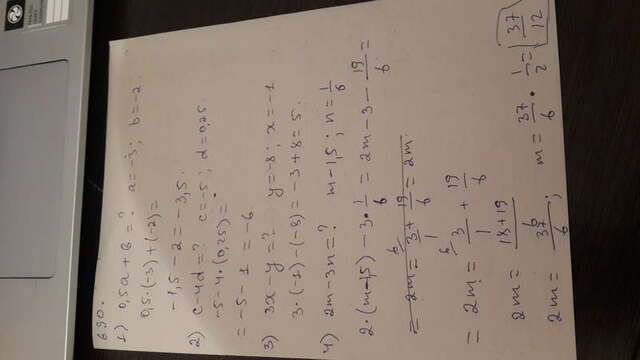 690.
1) 0,5a + b = ? a = -3; b = -2.
0,5·(-3)+(-2)=
-1,5 - 2 = -3,5.
2) c - 4d = ? c = -5; d = 0,25
-5 - 4·(0,25) =
= -5 - 1 = -6
3) 3x - y = ? y = -8; x = -1
3·(-1) - (-8) = -3 + 8 = 5.
4) 2m - 3n = ? m - 1,5; n = 1/6
2·(m - 1,5) - 3·1/6 = 2m - 3 - 19/6 =
= 2m = 3/1 + 19/6 = 2m.
= 2m = 3/1 + 19/6
2m = 18+19/6
2m = 37/6; m = 37/6 · 1/2 = 37/12